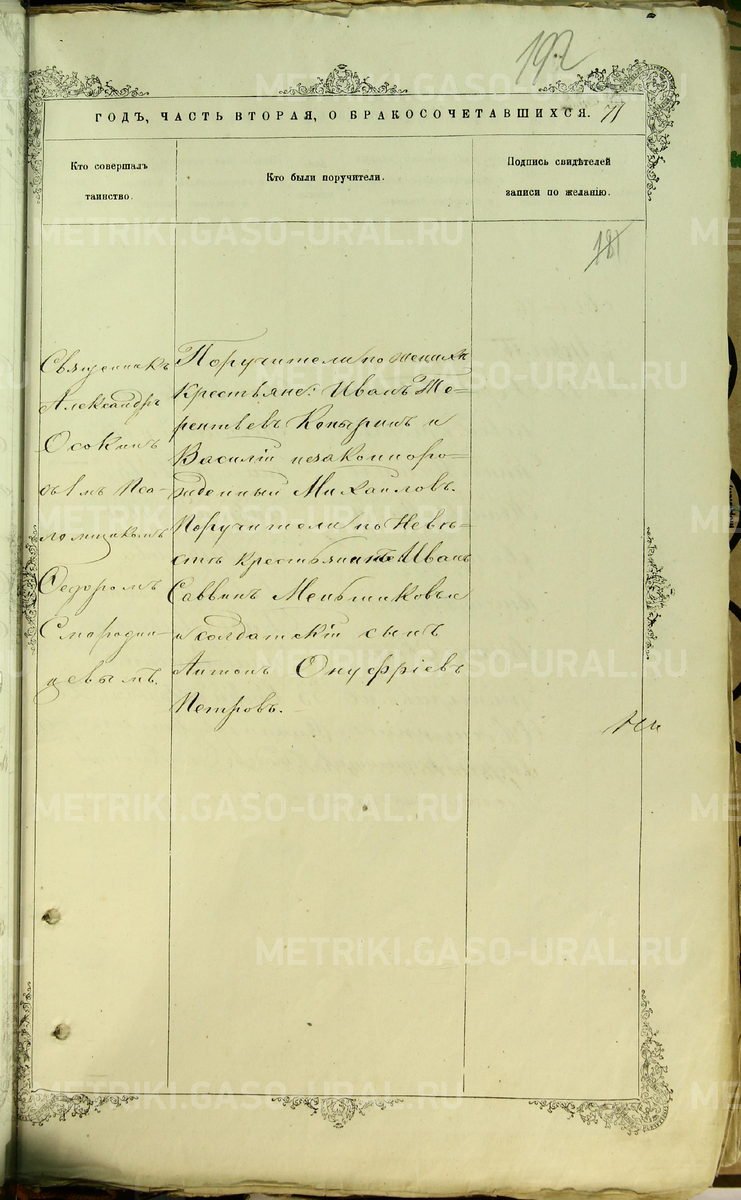 192
ГОДЪ, ЧАСТЬ ВТОРАЯ, О БРАКОСОЧЕТАВШИХСЯ. 71
Кто совершалъ
таинство.
Кто были поручители.
Подпись свидѣтелей
записи по желанію.
181
Священникъ
Александръ
Осокинъ
съ 1мъ Пса-
ломщикомъ
Федоромъ
Смородин-
цевымъ.
Поручители по женихѣ
крестьяне: Иванъ Те-
рентьевъ Копыринъ и
Василій незаконноро-
жденный Михайловъ.
Поручители по Невѣ-
стѣ крестьянинъ Иванъ
Саввинъ Меньшиковъ и
и солдатскій сынъ
Антонъ Онуфріевъ
Петровъ.
METRIKI.GASO-URAL.RU